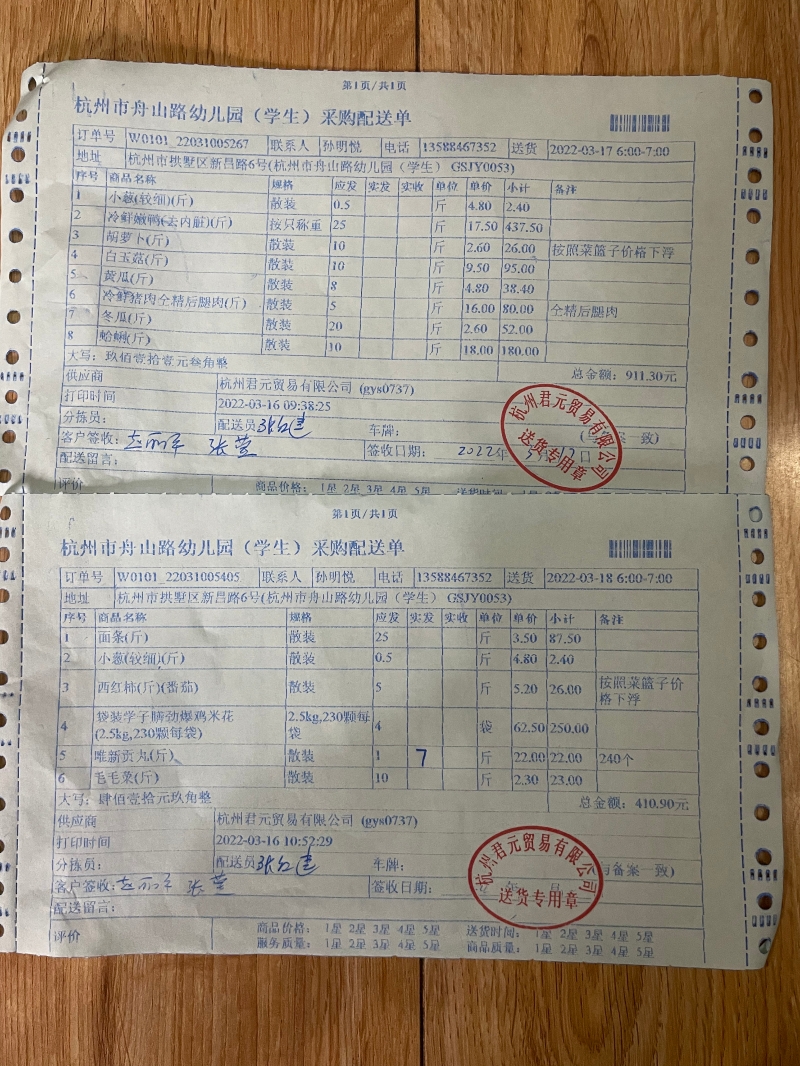 第1页/共1页
杭州市舟山路幼儿园（学生）采购配送单
订单号 W0101_22031005267 联系人 孙明悦 电话 13588467352 送货 2022-03-17 6:00-7:00
地址 杭州市拱墅区新昌路6号(杭州市舟山路幼儿园（学生） GSJY0053)
序号 商品名称 规格 应发 实发 实收 单位 单价 小计 备注
1 小葱(较细)(斤) 散装 0.5 斤 4.80 2.40
2 冷鲜嫩鸭(去内脏)(斤) 按只称重 25 斤 17.50 437.50
3 胡萝卜(斤) 散装 10 斤 2.60 26.00 按照菜篮子价格下浮
4 白玉菇(斤) 散装 10 斤 9.50 95.00
5 黄瓜(斤) 散装 8 斤 4.80 38.40
6 冷鲜猪肉全精后腿肉(斤) 散装 5 斤 16.00 80.00 全精后腿肉
7 冬瓜(斤) 散装 20 斤 2.60 52.00
8 蛤蜊(斤) 散装 10 斤 18.00 180.00
大写：玖佰壹拾壹元叁角整 总金额：911.30元
供应商 杭州君元贸易有限公司 (gys0737)
打印时间 2022-03-16 09:38:25
分拣员： 配送员 车牌： 一致)
客户签收： 张萱 签收日期： 2022年 日
配送留言：
评价 商品价格： 1星 2星 3星 4星 5星 送货时间：
杭州君元贸易有限公司
送货专用章
第1页/共1页
杭州市舟山路幼儿园（学生）采购配送单
订单号 W0101_22031005405 联系人 孙明悦 电话 13588467352 送货 2022-03-18 6:00-7:00
地址 杭州市拱墅区新昌路6号(杭州市舟山路幼儿园（学生） GSJY0053)
序号 商品名称 规格 应发 实发 实收 单位 单价 小计 备注
1 面条(斤) 散装 25 斤 3.50 87.50
2 小葱(较细)(斤) 散装 0.5 斤 4.80 2.40
3 西红柿(斤)(番茄) 散装 5 斤 5.20 26.00 按照菜篮子价
格下浮
4 袋装学子 劲爆鸡米花 2.5kg,230颗每 4 袋 62.50 250.00
(2.5kg,230颗每袋) 袋
5 唯新贡丸(斤) 散装 1 7 斤 22.00 22.00 240个
6 毛毛菜(斤) 散装 10 斤 2.30 23.00
大写：肆佰壹拾元玖角整 总金额：410.90元
供应商 杭州君元贸易有限公司 (gys0737)
打印时间 2022-03-16 10:52:29
分拣员： 配送员 车牌： 与备案一致)
客户签收： 张萱 签收日期： 年 月 日
配送留言：
评价 商品价格： 1星 2星 3星 4星 5星 送货时间： 1星 2星 3星 4星 5星
服务质量： 1星 2星 3星 4星 5星 商品质量： 1星 2星 3星 4星 5星
杭州君元贸易有限公司
送货专用章